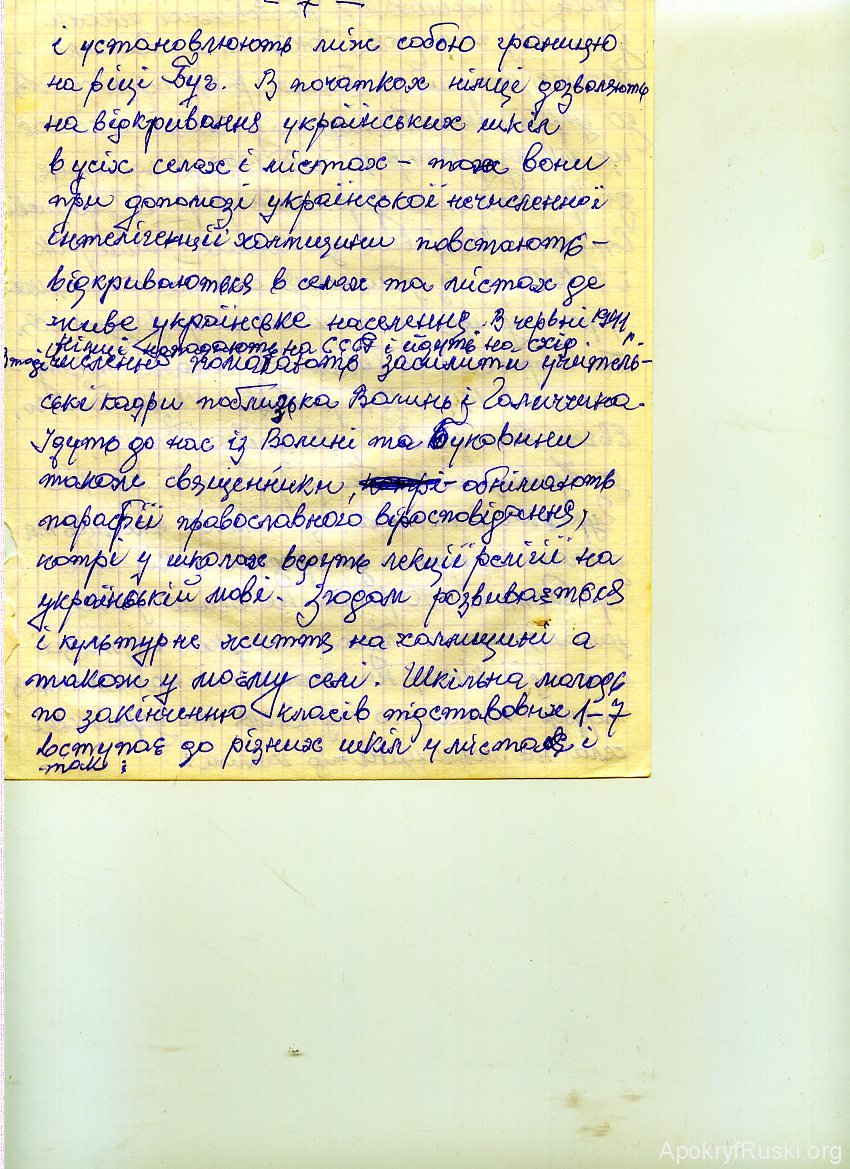 - 7 -
і установлюють між собою границю
на ріці Буг. В початках німці дозволяють
на відкривання українських шкіл
в усіх селах і містах – тож вони
при допомозі української нечисленної
інтелігенції холмщини повстають –
відкриваються в селах та містах де
живе українське населення. В червні 1941
німці нападають на СССР і йдуть на схід.
В тоді численно помагають засилити учитель-
ські кадри поблизька Волинь і Галиччина.
Ідуть до нас із Волині та Буковини
також священники, обнімають
парафії православного віросповідання,
котрі у школах ведуть лекції релігії на
українській мові. Згодом розвивається
і культурне життя на холмщині а
також у моєму селі. Шкільна молодь
по закінченню класів підставових 1–7
вступає до різних шкіл у містах і
там
ApokryfRuski.org